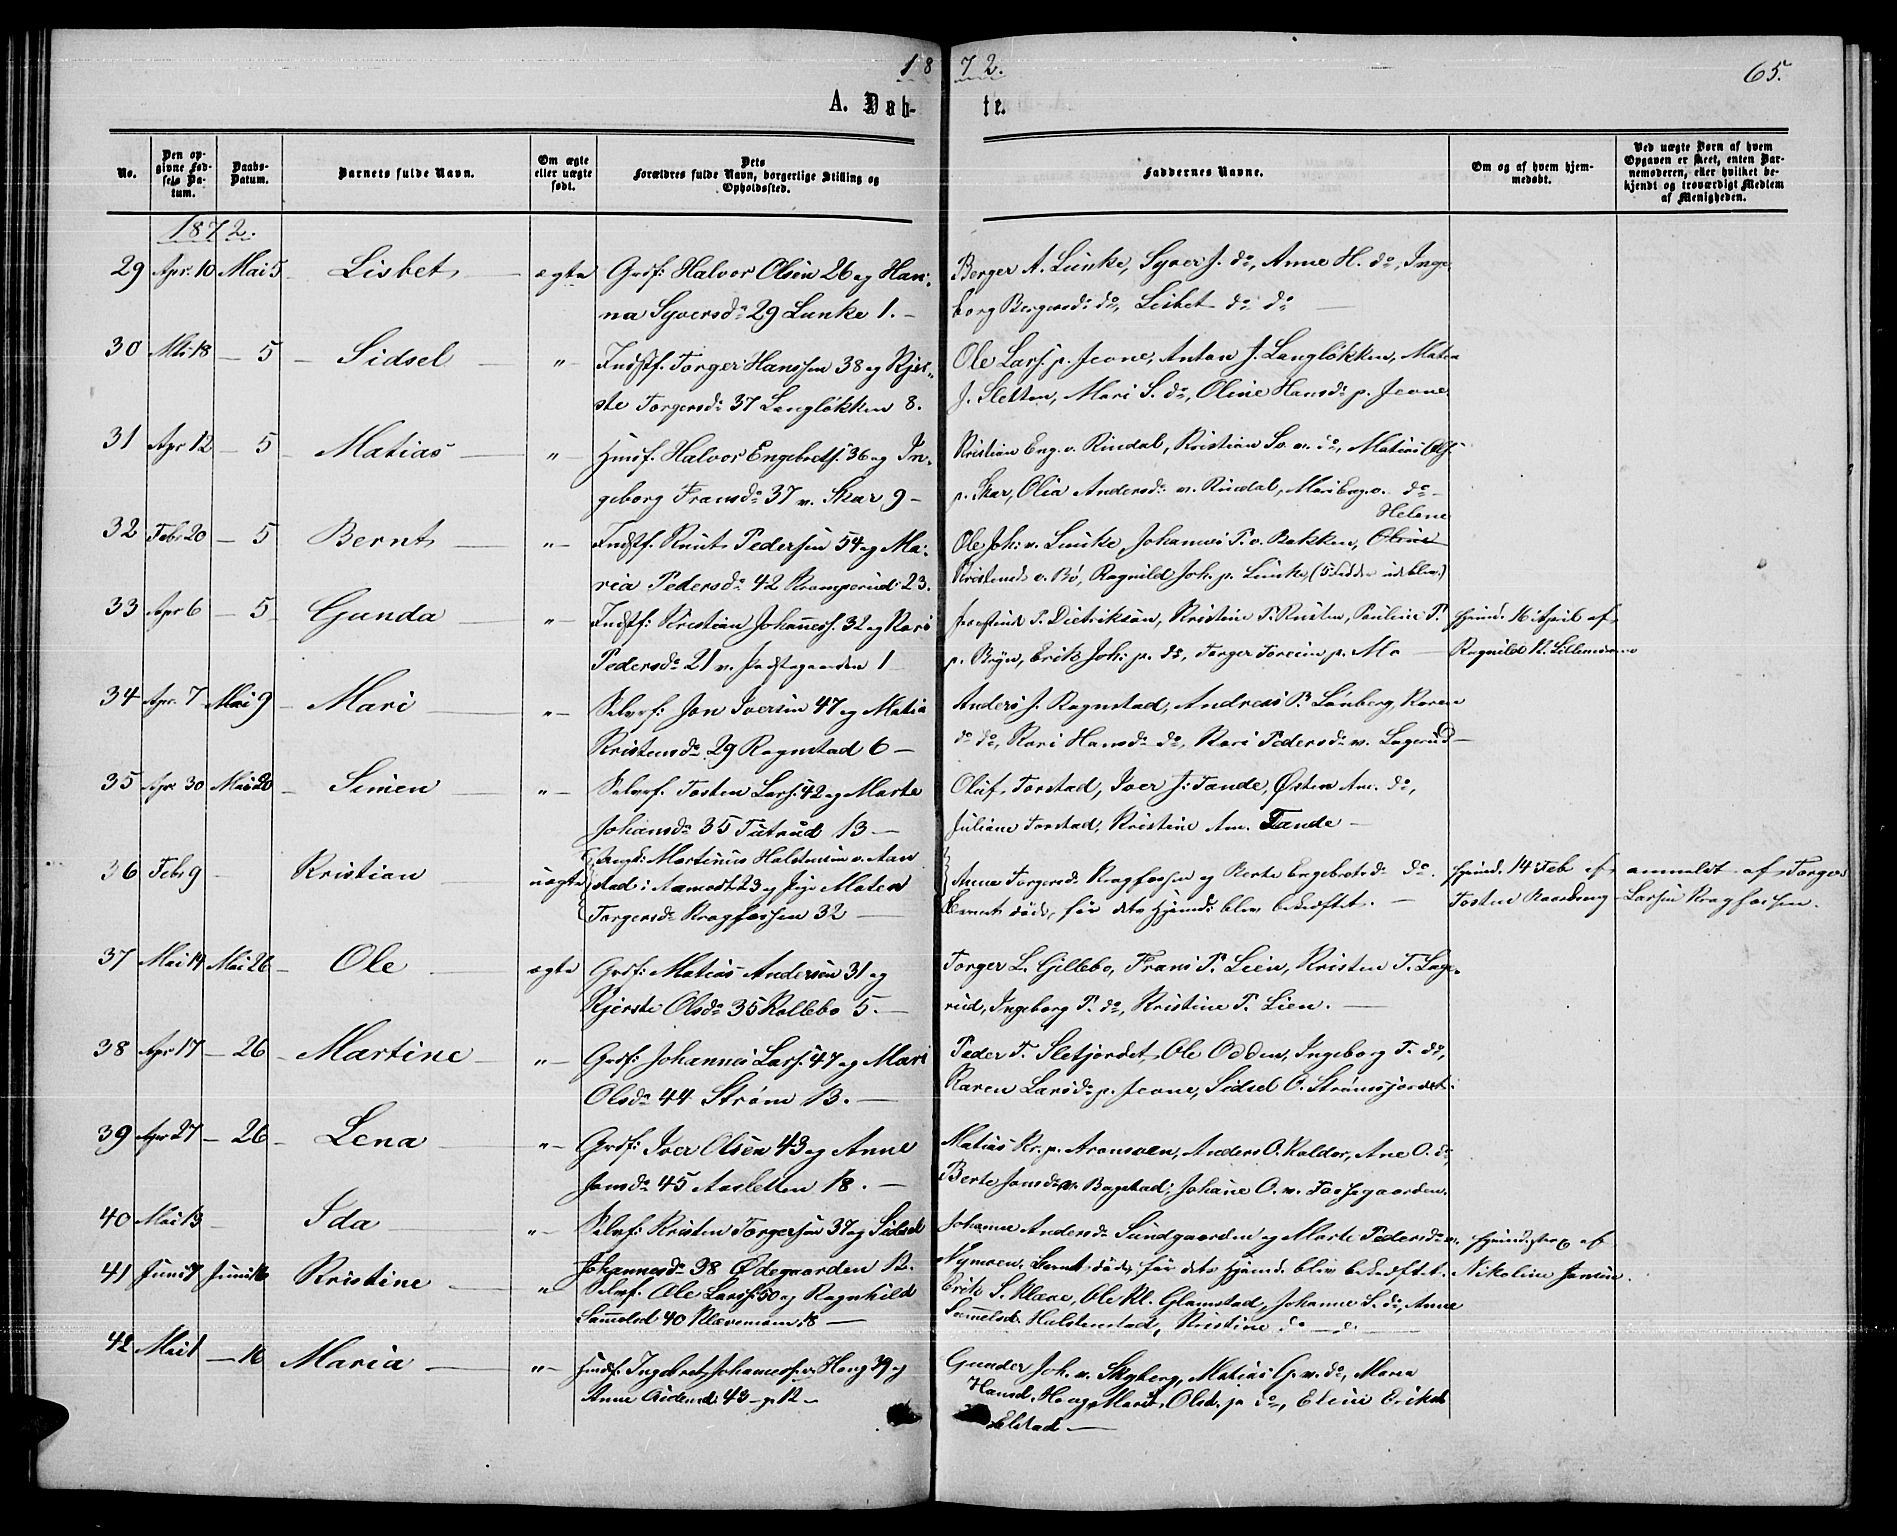 1872.
65.
A. Døbte.
No.
Den opgivne Fødsels Datum.
Daabs-Datum.
Barnets fulde Navn.
Om ægte eller uægte født.
Dets Forældres fulde Navn, borgerlige Stilling og Opholdssted.
Faddernes Navne.
Om og af hvem hjemmedøbt.
Ved uægte Børn af hvem Opgaven er skeet, enten Barnemoderen, eller hvilket bekjendt og troværdigt Medlem af Menigheden.
1872.
29 Apr. 10 Mai 5 Lisbet ægte Grdf: Halvor Olsen 26 og Han-
na Syversdr 29 Lunke 1.
Berger A. Lunke, Syver J. do, Anne H. do, Inge-
borg Bergersdr do, Lisbet do do
30 18 - 5 - Sidsel " Indstf. Torger Hanssen 38 og Kjer-
ste Torgersdr 37 Langløkken 8.
Ole Lars p. Jevne, Anton J. Langløkken, Matea
J. Sletten, Mari S. do, Oline Hansdr p. Jevne
31 Apr 12 - 5 - Matias " Husf. Halvor Engebrets. 36 og In-
geborg Fransdr 37 v. Skar 9
Kristian Eng. v. Rindal, Kristian So. v. do, Matias Ols.
p. Skar, Olia Andersdr v. Rindal, Mari Eng. v. do
32 Feb 20 - 5 Bernt " Indstf. Knut Pedersen 54 og Ma-
ria Pedersdr 42 Kramperud 23.
Helene
Ole Joh. v. Lunke, Johannes P. v. Bakken, Oline
Kristensd v. Bø, Ragnild Joh. p. Lunke, (5 Fadder udeblev)
33 Apr 6 - 5 Gunda " Indstf: Kristian Johanness. 32 og Kari
Pedersdr 21 v. 1
P. Dietrikson, Kristine P. Rusten, Pauline P.
p. Bryn, Erik Joh. p. do, Torger Toreim p. Mo
Hjemd. 16 April af
Ragnild N. Lillemoeen
34 Apr. 7 Mai 9 Mari " Selvf: Jon Iversen 47 og Matia
Kristensdr 29 Rognstad 6
Anders J. Rognstad, Andreas P. Lønberg, Karen
do do, Kari Hansdr do, Kari Pedersdr v. Lagerud
35 Apr 30 Mai 20 Simen " Selvf. Tosten Lars. 42 og Marte
Johansdr 35 Tutrud 13
Oluf Forstad, Iver J. Tande, Østen Am. do,
Juliane Forstad, Kristine Am. Tande
36 Feb 9 Kristian uægte Ungk: Martinus Halstensen v. Aan-
stad i Aamodt 23 og Pige Maten
Torgersdr Kragfossen 32
Anne Torgersdr Kragfossen og Berte Engebretsdr do.
Barnet døde, før dets Hjemd. blev bekræftet.
Hjemd. 14 Feb af
Tosten Kaarberg
anmeldt af Torger
Larsen Kragfossen.
37 Mai 14 Mai 26 Ole ægte Grdf: Matias Andersen 31 og
Kjerste Olsdr 35 Kollebo 5.
Torger L. Gillebo, Frans P. Lien, Kristen T. Lage-
rud, Ingeborg P. do, Kristine P. Lien.
38 Apr 17 - 26 - Martine " Grdf: Johannes Lars. 47 og Mari
Olsdr 44 Strøm 13.
Peder T. Sletjordet, Ole Odden, Ingeborg T. do,
Karen Larsdr p. Jevne, Sidsel O. Strømsjordet.
39 Apr 27 - 26 - Lena " Grdf: Iver Olsen 43 og Anne
Jonsdr 45 Aasletten 18.
Matias Kr. p. Aronsveen, Anders O. Kaldor, Ane O. do,
Berte Jonsdr v. Bagstad, Johane O. v. Fossegaarden.
40 Mai 13 Ida " Selvf: Kristen Torgersen 37 og Sidsel
Johannesdr 38 Ødegaarden 12.
Johanne Andersdr Sundgaarden og Marte Pedersdr v.
Nymoen. Barnet døde, før dets Hjemd. blev bekræftet.
Hjemd. strax af
Nikoline Jansen.
41 Juni 7 Juni 16 Kristine " Selvf. Ole Lars. 50 og Ragnhild
Samuelsd 40 Klævemoen 18
Erik S. Klæve, Ole Kl. Glamstad, Johanne S. do, Anne
Samuelsd. Halstenstad, Kristine do d.
42 Mai 1 - 16 Maria " Husf. Ingebret Johanness. v. Haug 39 og
Anne 43 12
Gunder Joh. v. Skyberg, Matias G. v. do, Maria
Hansd. Haug, Marit Olsd. p do, Eline Eriksd
Elstad